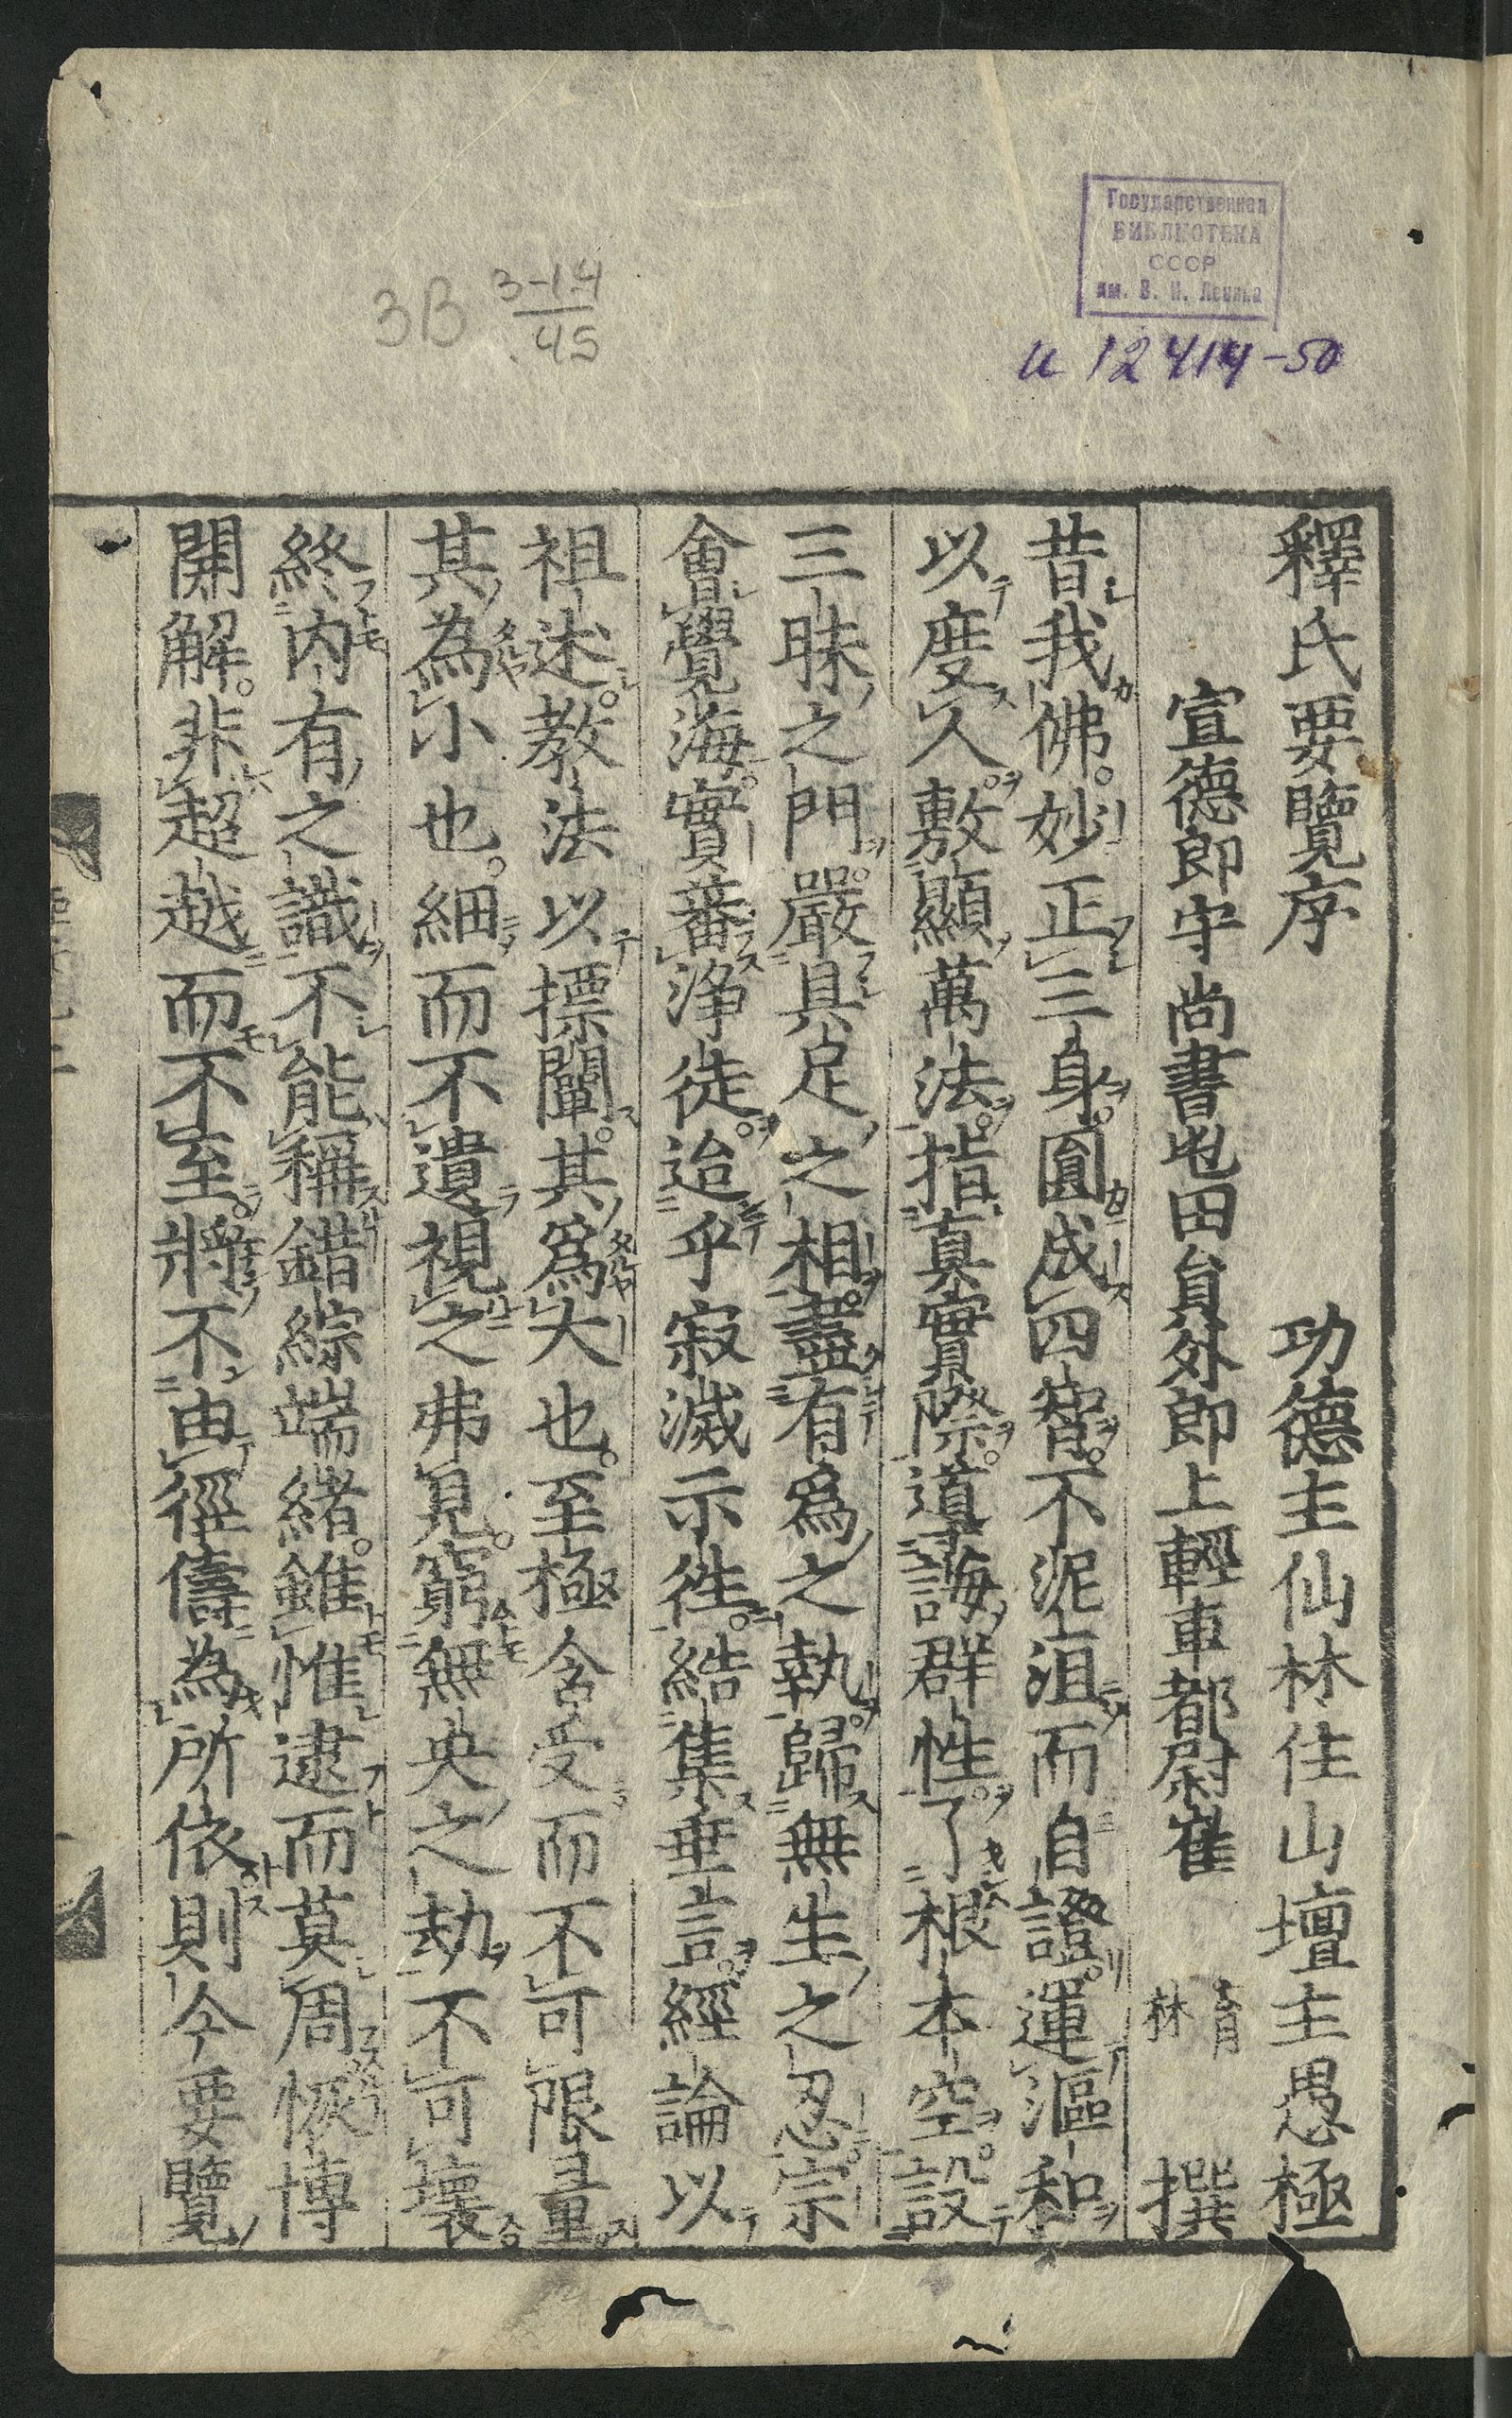 Государственная
БИБЛИОТЕКА
СССР
им. В. И. Ленина
и 12414-50
3В 3-14
45
釋氏要覽序　功德主仙林住山壇主愚極
宣德郎守尚書屯田員外郎上輕車都尉崔育林　撰
昔我佛。妙正三身。圓成四智。不泥沮而自證。運漚和
以度人。敷顯萬法。指真實際。導誨群性。了根本空。設
三昧之門。嚴具足之相。蓋有為之執。歸無生之忍。宗
會覺海。實蕃淨徒。迨乎寂滅示徃。結集垂言。經論以
祖述。教法以摽闡。其爲大也。至極含受而不可限量
其為小也。細而不遺視之弗見。窮無央之劫不可壞
終内有之識不能稱錯綜端緒。雖惟逮而莫周恢博
開解。非超越而不至。將不由徑儔為所依則今要覽